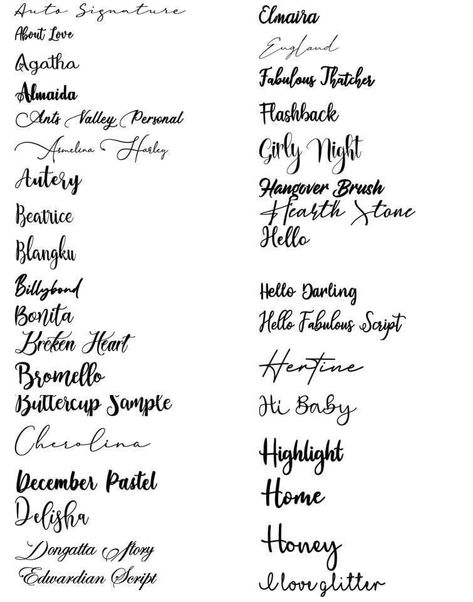 Auto Signature
About Love
Agatha
Almaida
Ants Valley Personal
Asmelina Harley
Autery
Beatrice
Blangku
Billybond
Bonita
Broken Heart
Bromello
Buttercup Sample
Cherolina
December Pastel
Delisha
Dongatta Story
Edwardian Script
Elmaira
England
Fabulous Thatcher
Flashback
Girly Night
Hangover Brush
Hearth Stone
Hello
Hello Darling
Hello Fabulous Script
Hertine
Hi Baby
Highlight
Home
Honey
I love glitter